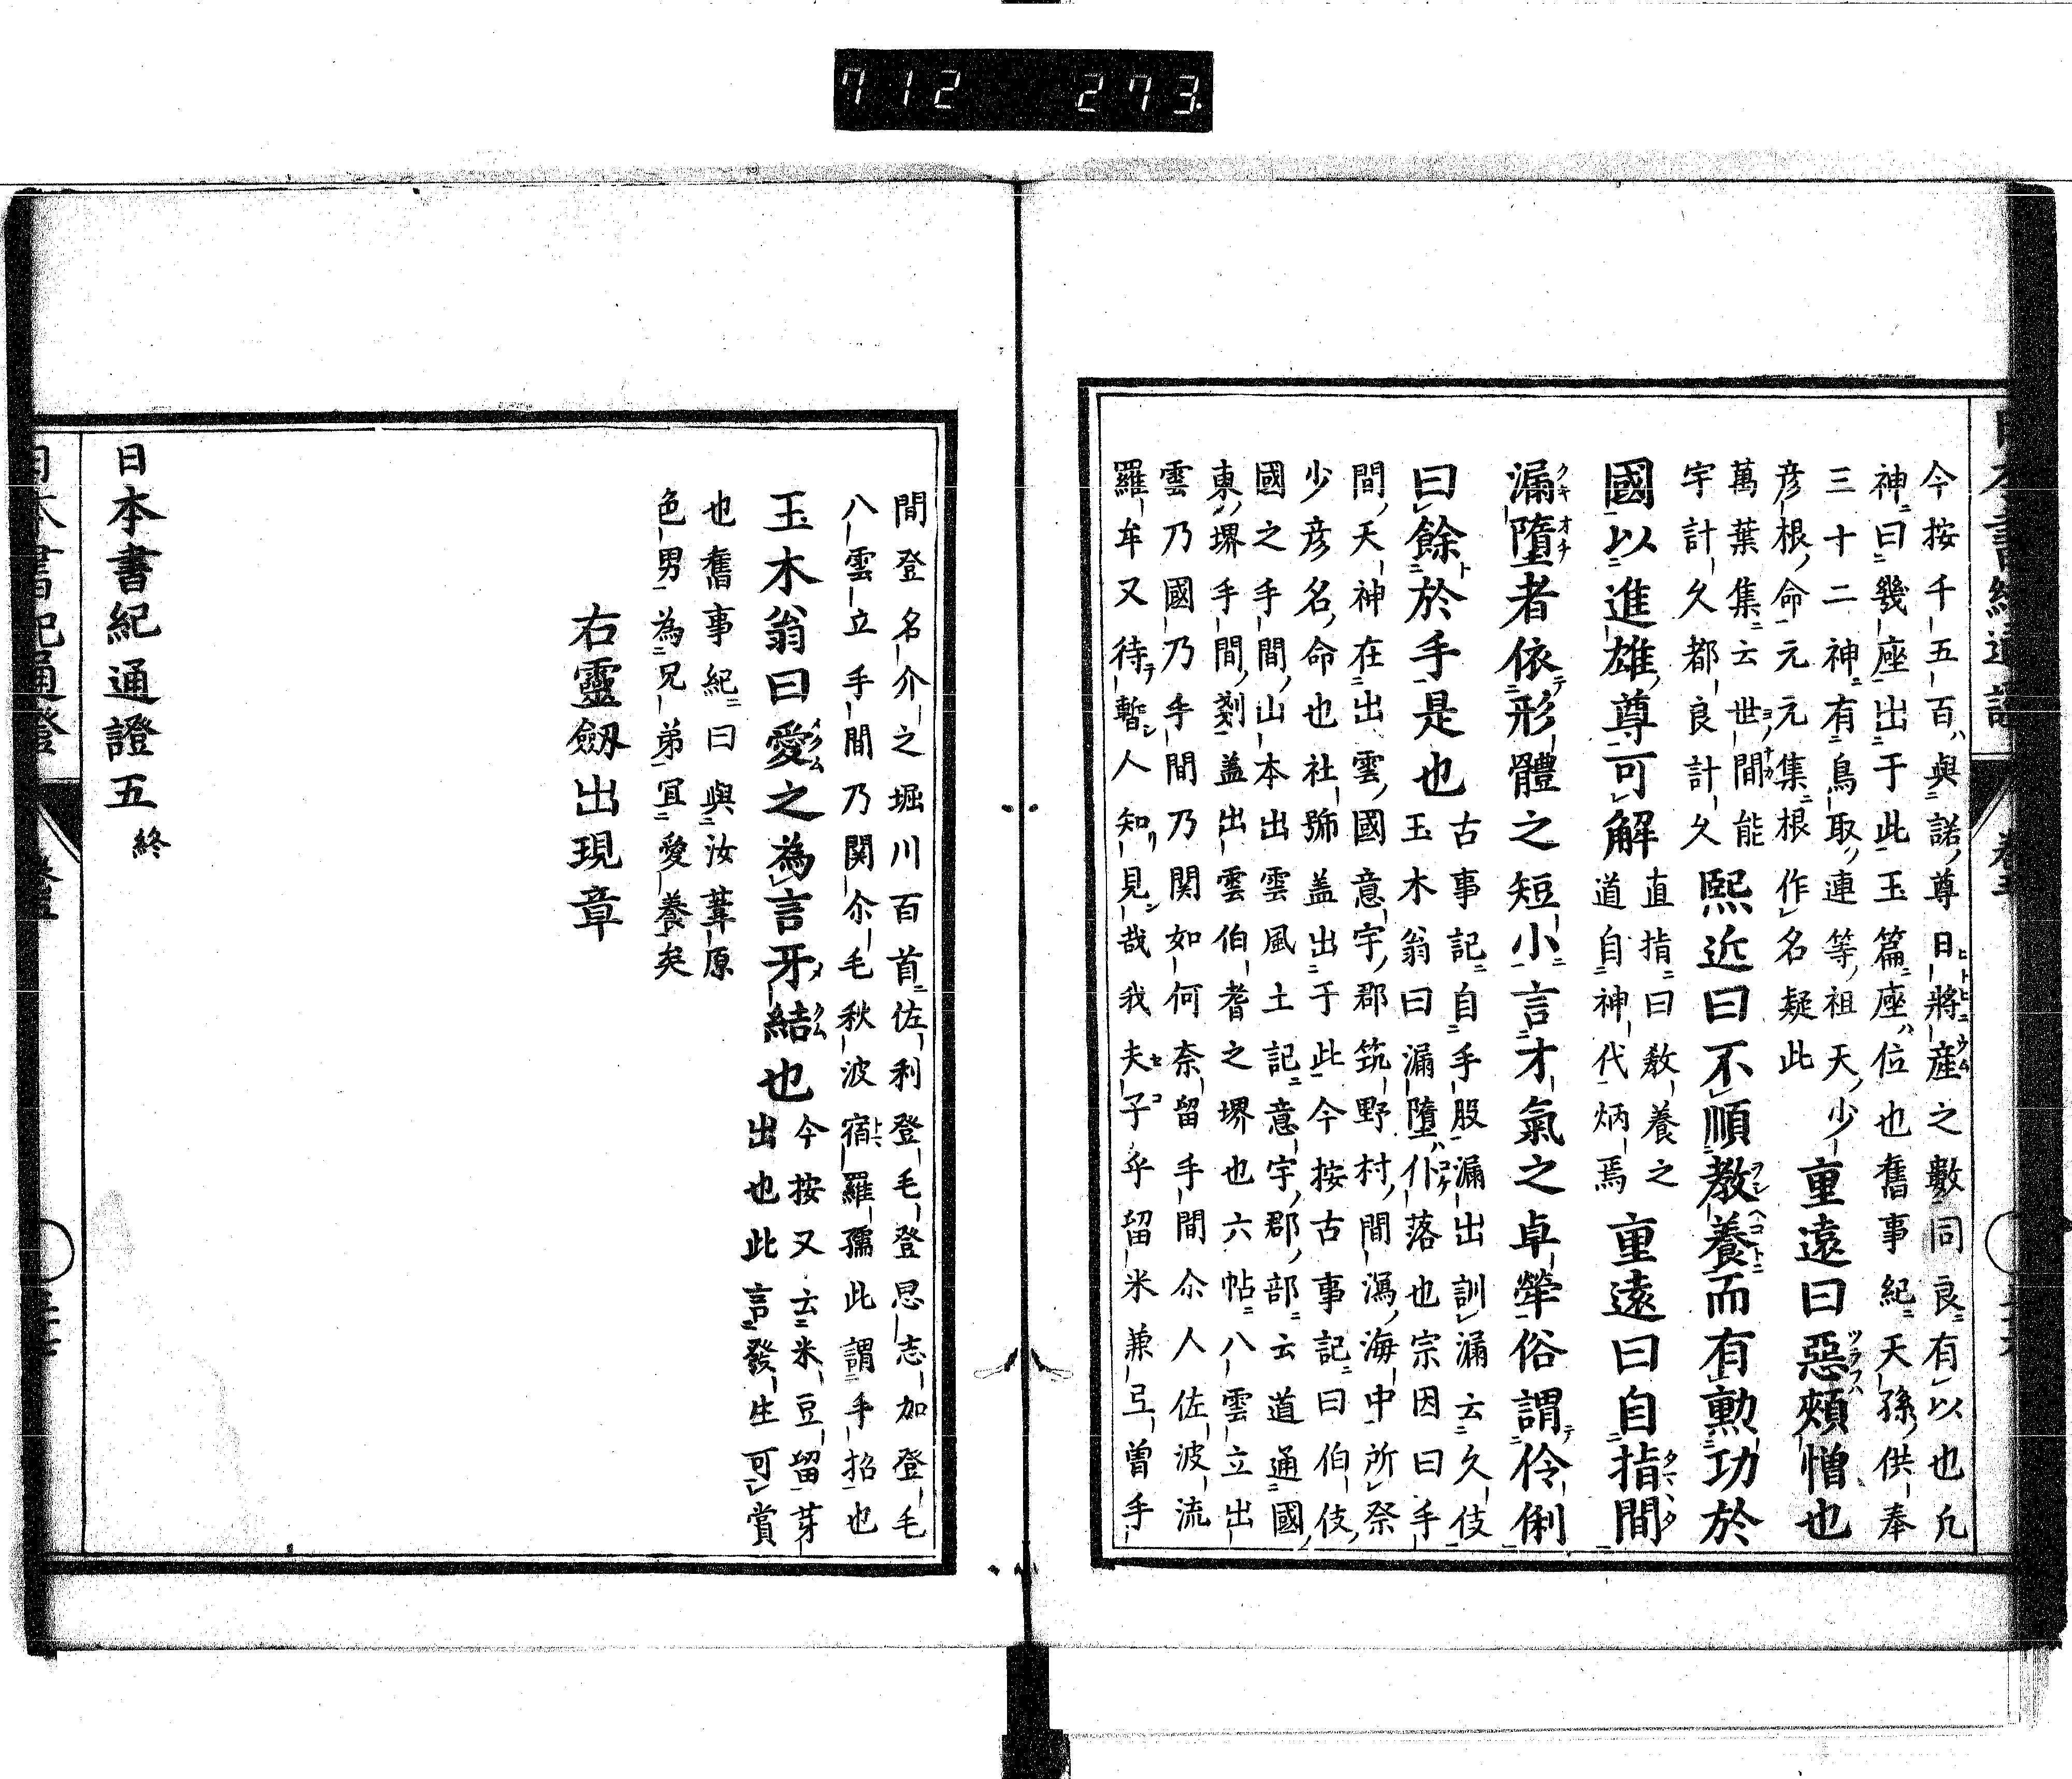 712 273
今按千五百與諾尊日將產之數同良有以也凡
神曰幾座出于此玉篇座位也舊事紀天孫供奉
三十二神有鳥取連等祖天少
彦根命元元集根作名疑此
重遠曰惡頰憎也
萬葉集云世間能
宇計久都良計久
熙近曰不順教養而有勲功於
國以進雄尊可解
直指曰教養之
道自神代炳焉
重遠曰自指間
漏墮者依形體之短小言才氣之卓犖俗謂伶俐
曰餘於手是也
古事記自手股漏出訓漏云久伎
玉木翁曰漏墮仆落也宗因曰手
間天神在出雲國意宇郡筑野村間潟海中所祭
少彦名命也社號盖出于此今按古事記曰伯伎
國之手間山本出雲風土記意宇郡部云道通國
東堺手間剗盖出雲伯耆之堺也六帖八雲立出
雲乃國乃手間乃関如何奈留手間尒人佐波流
羅牟又待暫人知見哉我夫子乎留米兼弖曽手
間登名介之堀川百首佐利登毛登思志加登毛
八雲立手間乃関尒毛秋波宿羅孺此謂手招也
玉木翁曰愛之為言牙結也
今按又云米豆留芽
出也此言發生可賞
也舊事紀曰與汝葦原
色男為兄弟宜愛養矣
右靈劔出現章
日本書紀通證五 終
日本書紀通證